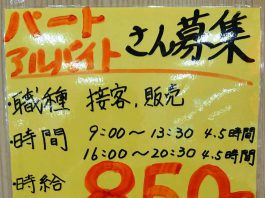 パート
アルバイト さん募集
・職種 接客,販売
・時間 9:00～13:30 4.5時間
16:00～20:30 4.5時間
・時給 850